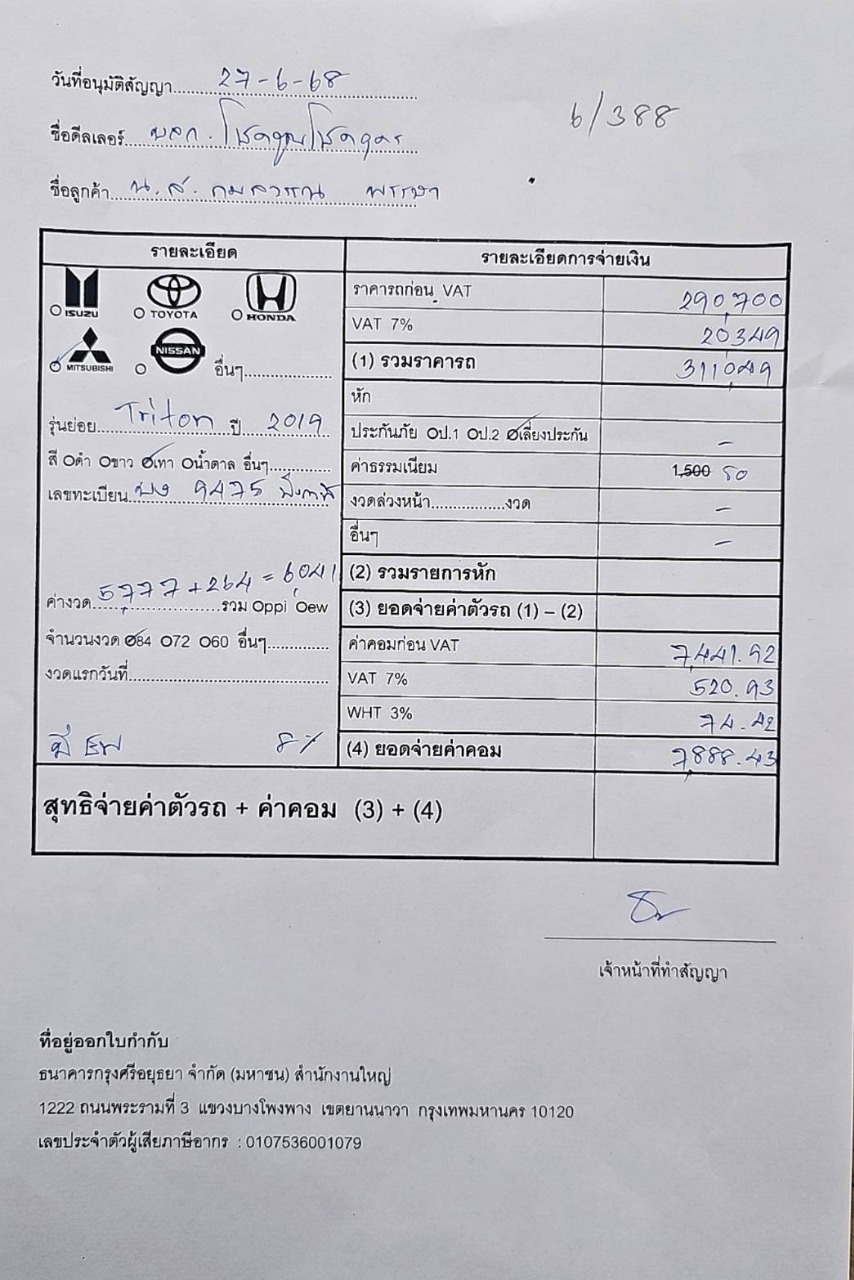 วันที่อนุมัติสัญญา 27-6-68
6/388
ชื่อดีลเลอร์ บลก. โชคคูณโชค
ชื่อลูกค้า น.ส. กมลวรรณ พรรษา
รายละเอียด
รายละเอียดการจ่ายเงิน
ISUZU TOYOTA HONDA
ราคารถก่อน VAT 290,700
VAT 7% 20,349
MITSUBISHI NISSAN อื่นๆ
(1) รวมราคารถ 311,049
หัก
รุ่นย่อย Triton ปี 2019
ประกันภัย Oป.1 Oป.2 Oเลี่ยงประกัน -
สี Oดำ Oขาว Oเทา Oน้ำตาล อื่นๆ
ค่าธรรมเนียม 1,500 50
เลขทะเบียน 9475
งวดล่วงหน้า งวด -
อื่นๆ -
(2) รวมรายการหัก
ค่างวด 5,777 + 264 = 6,041 รวม Oppi Oew
(3) ยอดจ่ายค่าตัวรถ (1) – (2)
จำนวนงวด O84 O72 O60 อื่นๆ
ค่าคอมก่อน VAT 7,441.92
งวดแรกวันที่
VAT 7% 520.93
WHT 3% 74.42
8%
(4) ยอดจ่ายค่าคอม 7,888.43
สุทธิจ่ายค่าตัวรถ + ค่าคอม (3) + (4)
เจ้าหน้าที่ทำสัญญา
ที่อยู่ออกใบกำกับ
ธนาคารกรุงศรีอยุธยา จำกัด (มหาชน) สำนักงานใหญ่
1222 ถนนพระรามที่ 3 แขวงบางโพงพาง เขตยานนาวา กรุงเทพมหานคร 10120
เลขประจำตัวผู้เสียภาษีอากร : 0107536001079